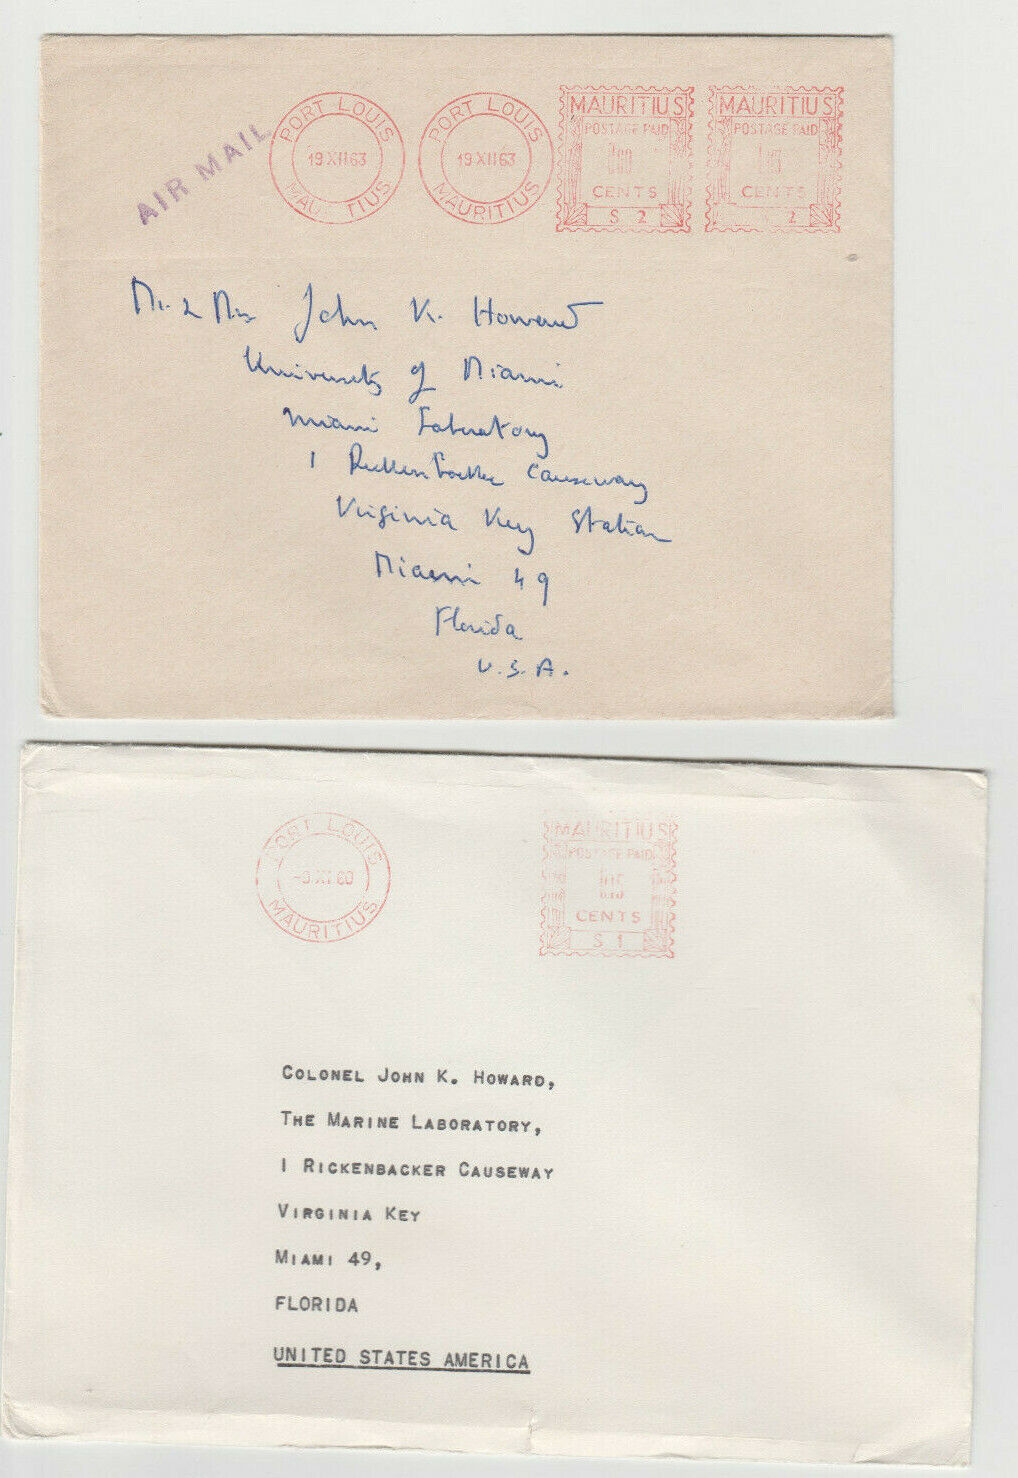 AIR MAIL
PORT LOUIS
19 XII 63
MAU TIUS
PORT LOUIS
19 XII 63
MAURITIUS
MAURITIUS
POSTAGE PAID
CENTS
S 2
MAURITIUS
POSTAGE PAID
CENTS
2
Mr. & Mrs John K. Howard
University of Miami
Miami Laboratory
1 Causeway
Virginia Key Station
Miami 49
Florida
U.S.A.
PORT LOUIS
MAURITIUS
MAURITIUS
POSTAGE PAID
CENTS
S 1
COLONEL JOHN K. HOWARD,
THE MARINE LABORATORY,
1 RICKENBACKER CAUSEWAY
VIRGINIA KEY
MIAMI 49,
FLORIDA
UNITED STATES AMERICA